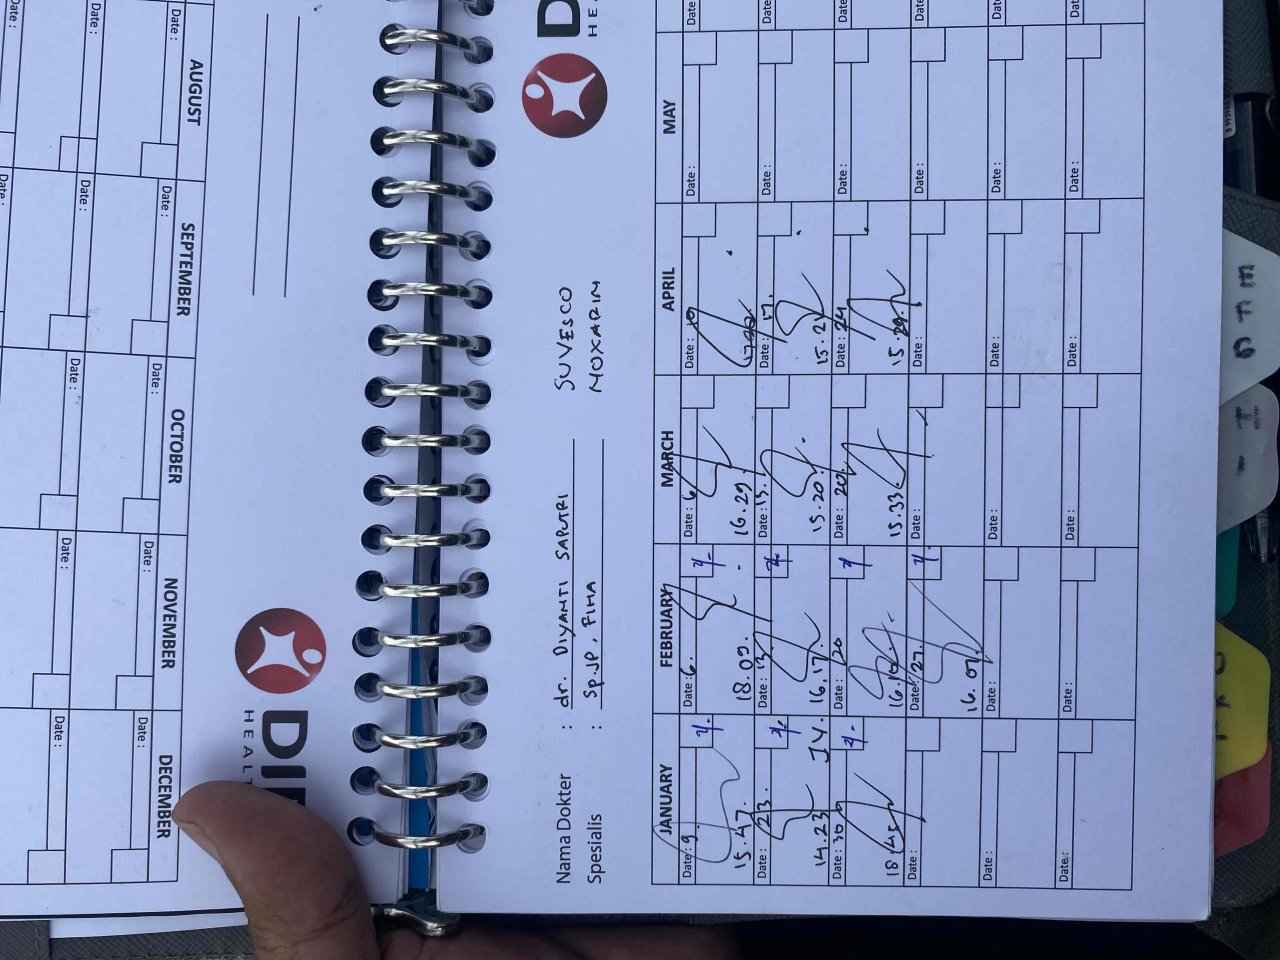 Nama Dokter : dr. DIYANTI SAPUTRI SUVESCO
Spesialis : Sp.JP, FIHA NOXARIN
JANUARY FEBRUARY MARCH APRIL MAY
Date: 9. Date: 6. Date: 6 Date: 10 Date: Date:
15.47. 18.09. 16.29
Date: 23. Date: 13 Date: 13. Date: 17. Date: Date:
14.23 JY. 16.17 15.20. 15.21
Date: 30 Date: 20 Date: 20. Date: 24 Date: Date:
18.45 16.10. 15.33. 15.29.
Date: Date: 27. Date: Date: Date: Date:
16.07.
Date: Date: Date: Date: Date: Date:
Date: Date: Date: Date: Date: Date:
AUGUST SEPTEMBER OCTOBER NOVEMBER DECEMBER
Date: Date: Date: Date: Date:
Date: Date: Date: Date: Date: